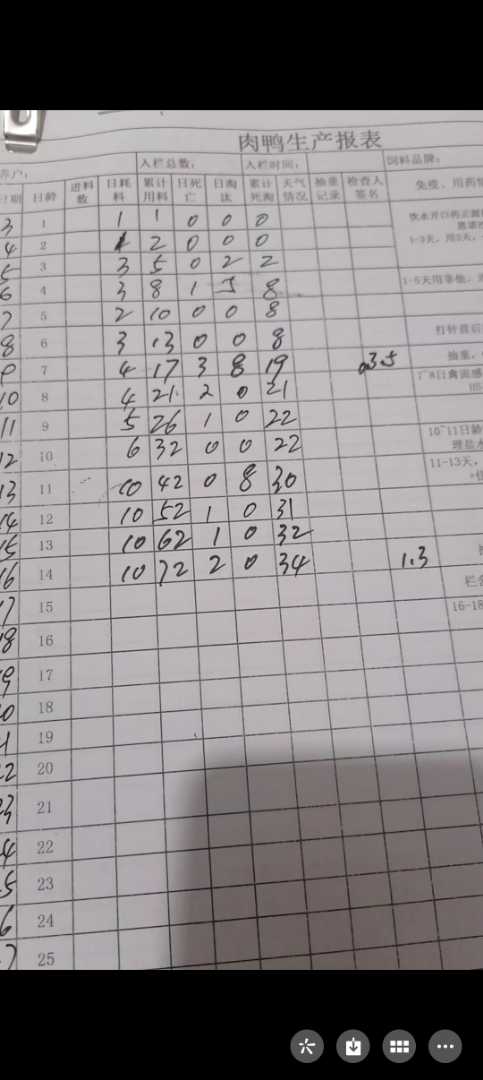 肉鸭生产报表
养户： 入栏总数： 入栏时间： 饲料品牌：
日期 日龄 进料数 日耗料 累计用料 日死亡 日淘汰 累计死淘 天气情况 抽重记录 检查人签名 免疫、用药
3 1 1 1 0 0 0
4 2 1 2 0 0 0 1-3天，用
5 3 3 5 0 2 2
6 4 3 8 1 5 8 1-5天用
7 5 2 10 0 0 8
8 6 3 13 0 0 8 打针前后
9 7 4 17 3 8 19 0.35 抽重，
10 8 4 21 2 0 21
11 9 5 26 1 0 22
12 10 6 32 0 0 22 10~11日龄
13 11 10 42 0 8 30 11-13天，
14 12 10 52 1 0 31
15 13 10 62 1 0 32
16 14 10 72 2 0 34 1.3
17 15 16-18
18 16
19 17
20 18
21 19
22 20
23 21
24 22
25 23
26 24
27 25